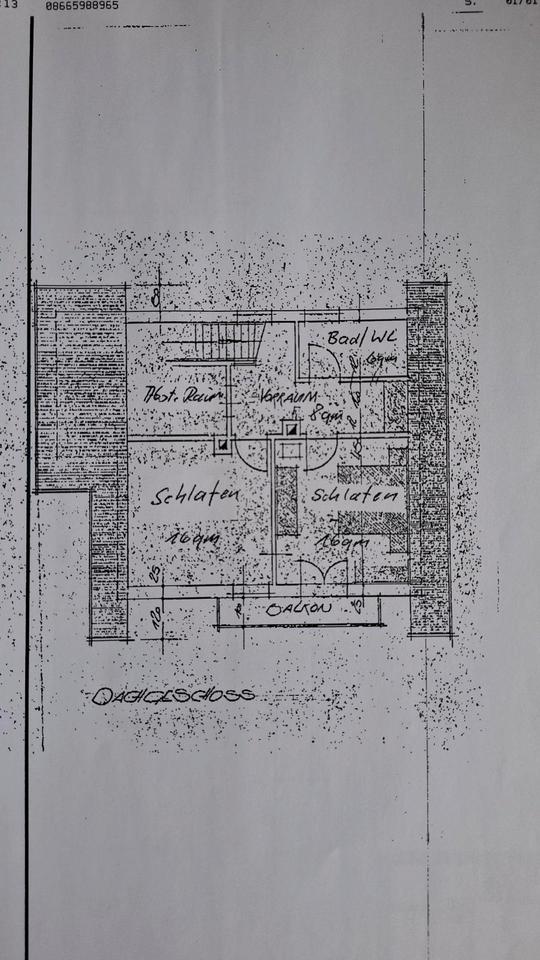 :13 08665988965 S. 01/01
Bad/WC
6qm
Abst. Raum
VORRAUM
8qm
Schlafen
Schlafen
16qm
16qm
BALKON
DACHGESCHOSS